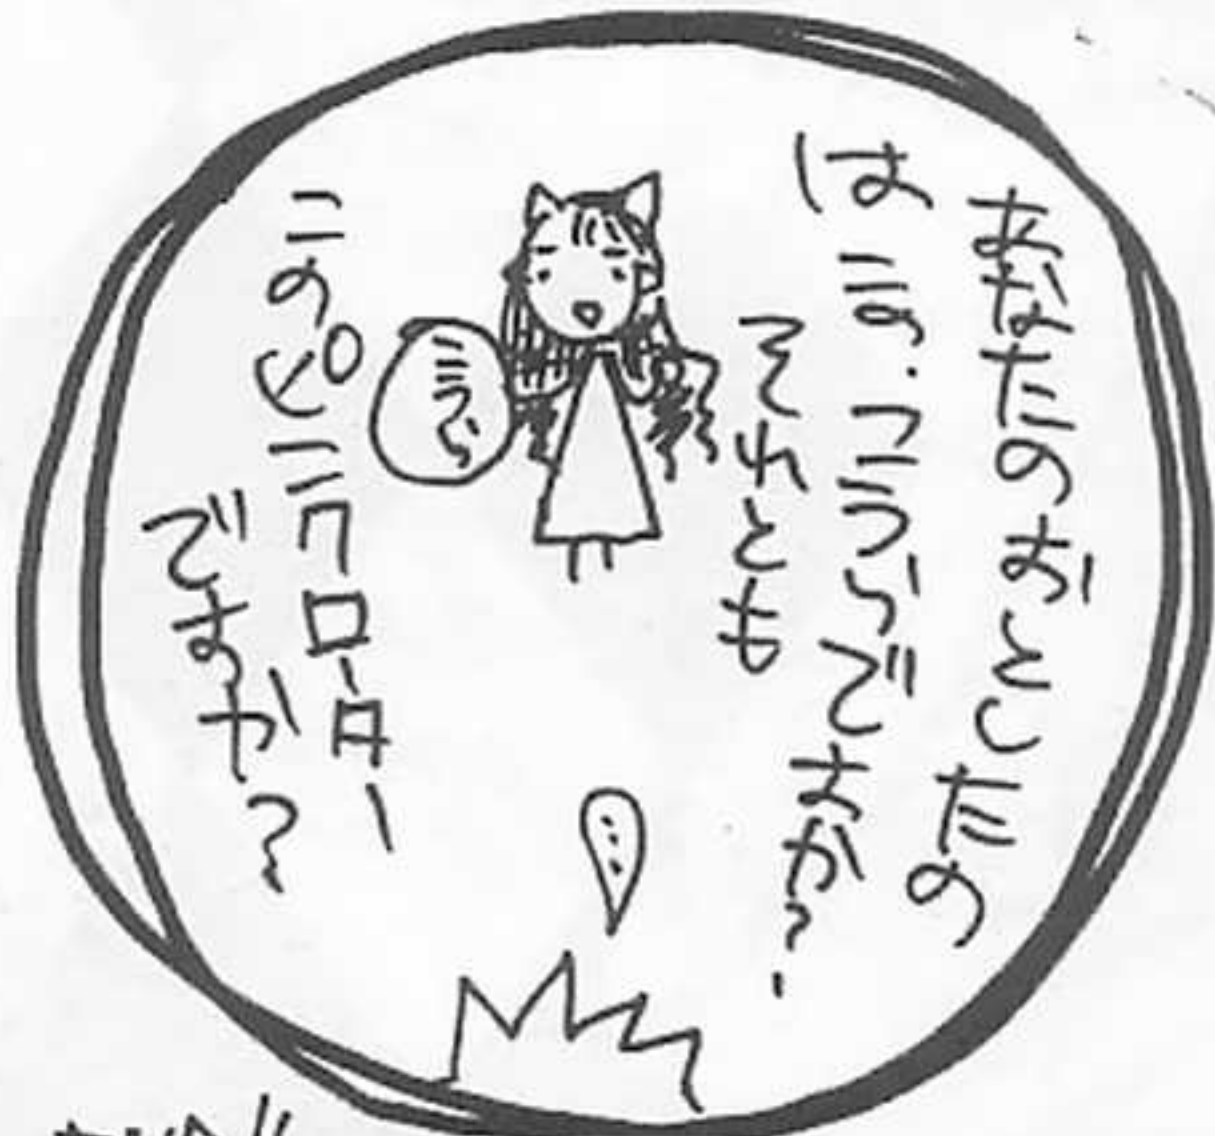 あなたのおとしたの
は この・こうらですか？
それとも
こうら
このピニクローター
ですか？